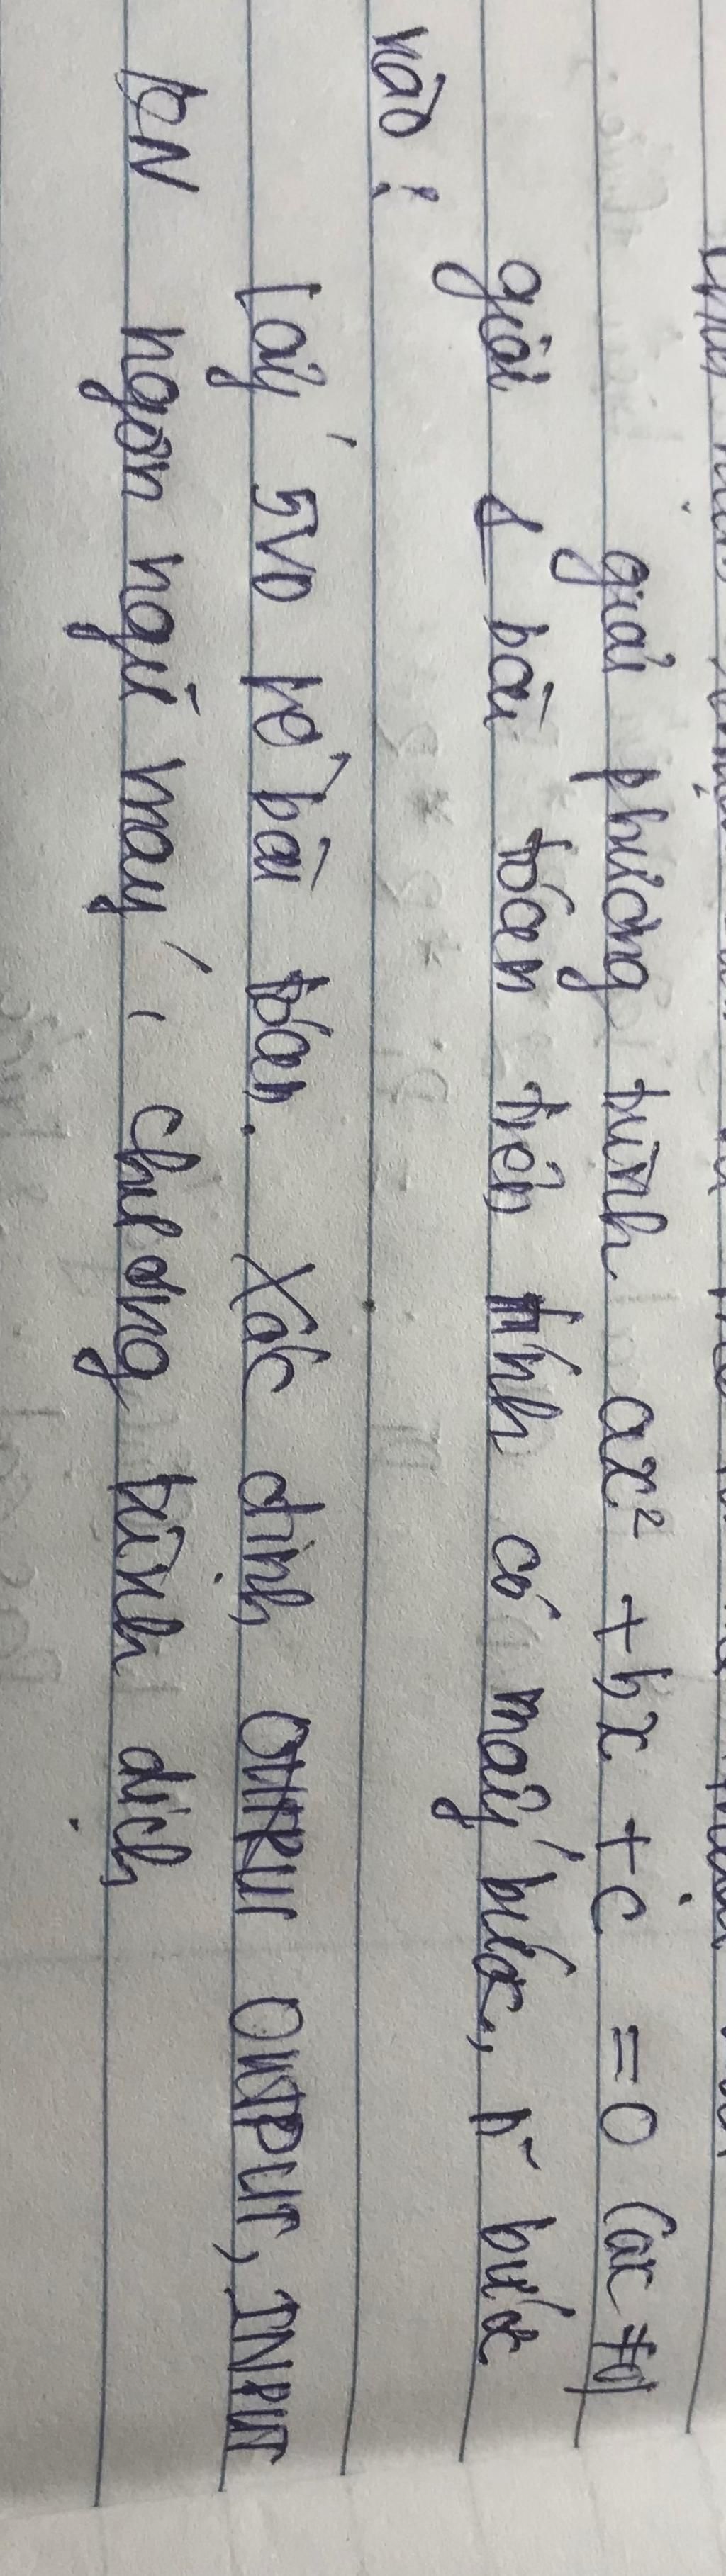 giải phương trình ax² + bx + c = 0 (a ≠ 0)
giải 1 bài toán trên tính có mấy bước, là bước
nào :
Lấy 5 VD về bài toán. Xác định OUTPUT, INPUT
KN ngôn ngữ máy, chương trình dịch